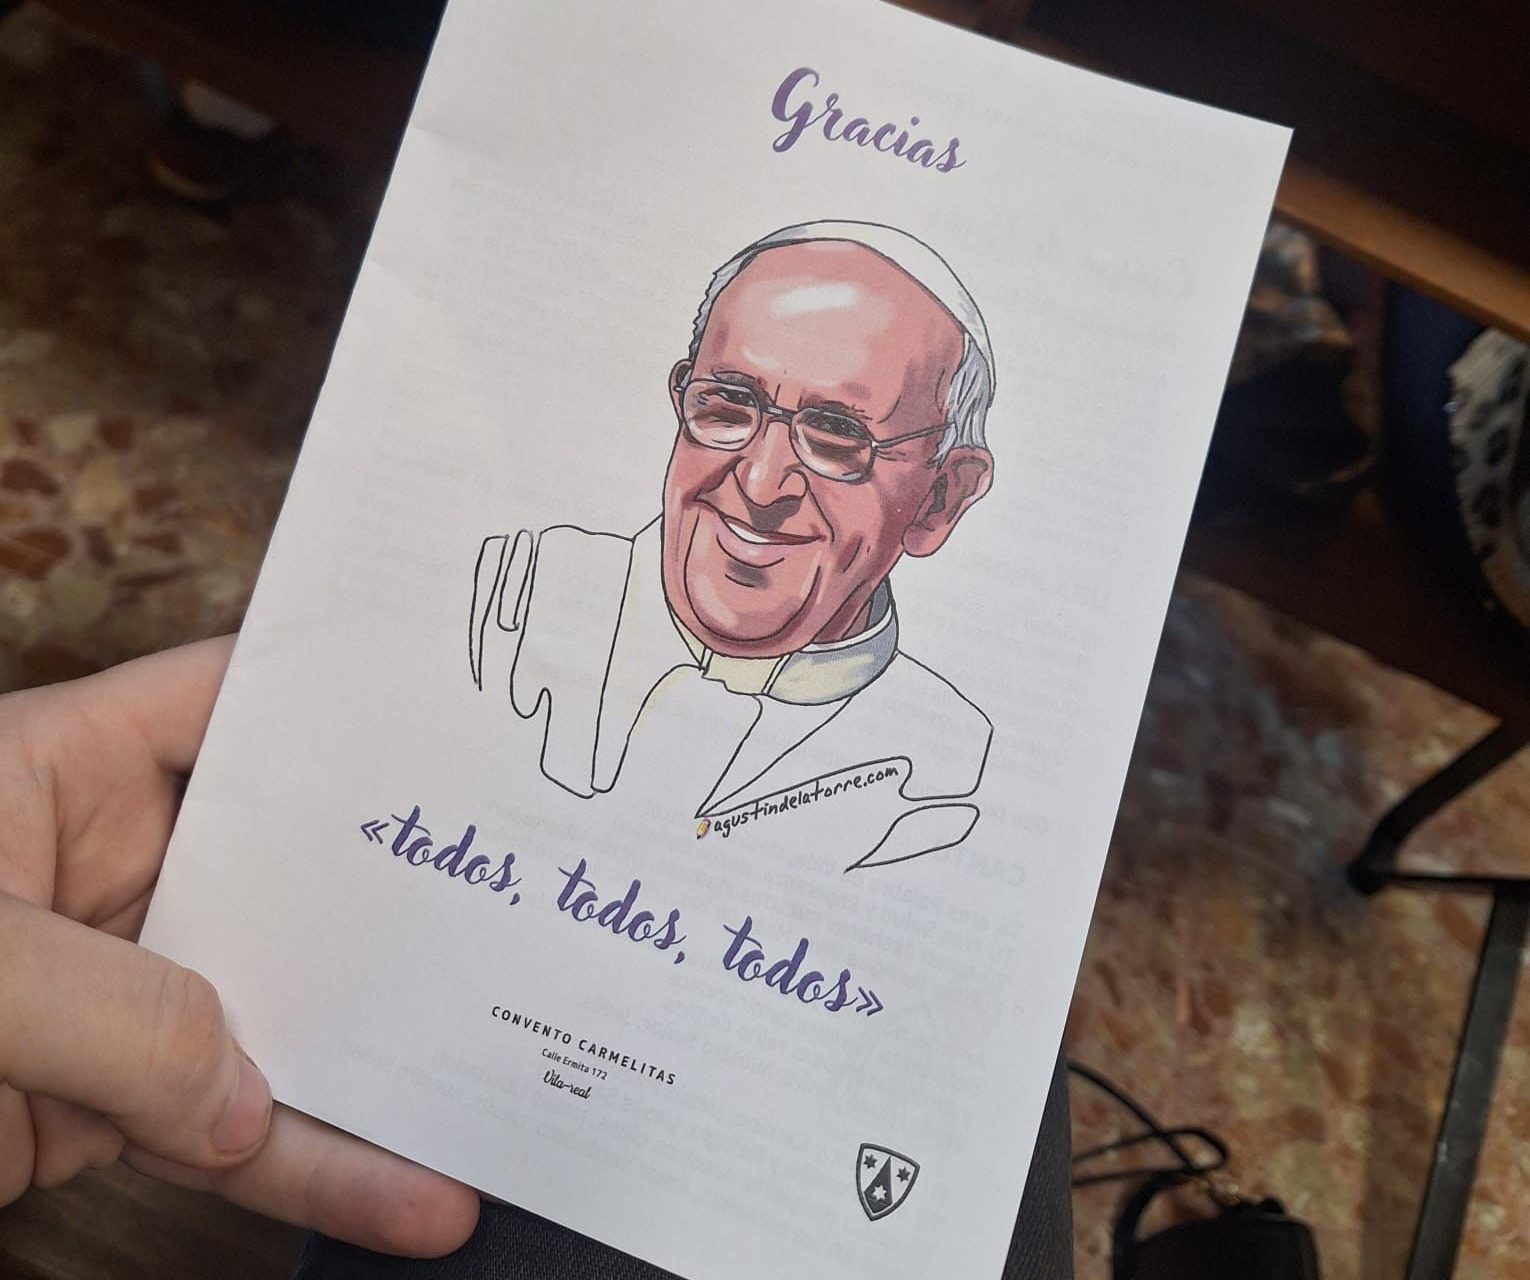 Gracias
agustindelatorre.com
«todos, todos, todos»
CONVENTO CARMELITAS
Calle Ermita 172
Vila-real